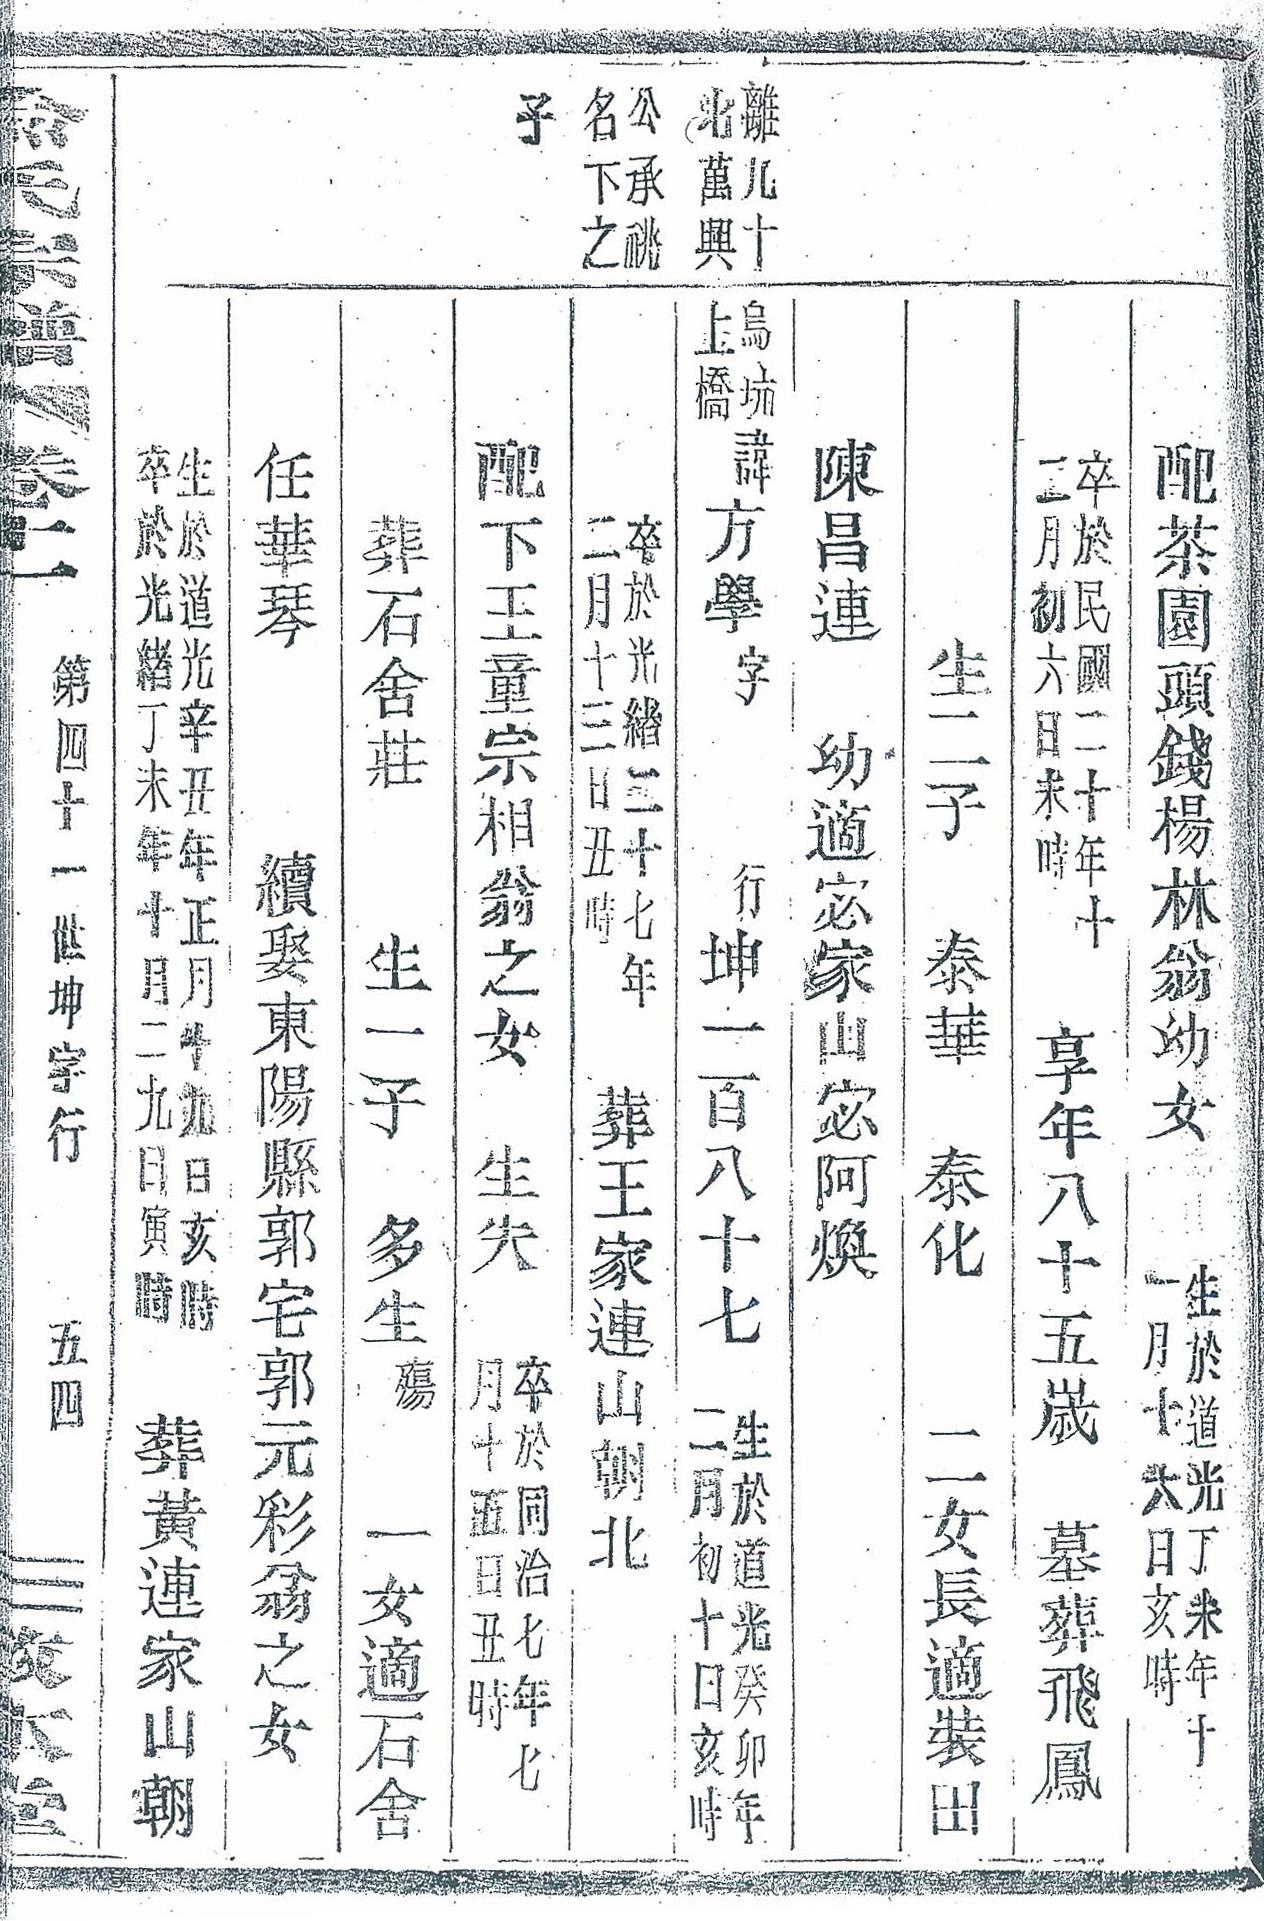 離九十
北萬興
公承祧
名下之
子
配茶園頭錢楊林翁幼女
生於道光丁未年十
一月十六日亥時
卒於民國二十年十
二月初六日未時
享年八十五歲 墓葬飛鳳
生二子 泰華 泰化 二女長適裝田
陳昌連 幼適宓家山宓阿煥
烏坑
上橋
諱方學 字 行坤一百八十七
生於道光癸卯年
二月初十日亥時
卒於光緒三十七年
二月十三日丑時
葬王家連山朝北
配下王童宗相翁之女 生失
卒於同治七年七
月十五日丑時
葬石舍莊 生一子 多生 殤 一女適石舍
任華琴 續娶東陽縣郭宅郭元彩翁之女
生於道光辛丑年正月十九日亥時
卒於光緒丁未年十月二九日寅時
葬黃連家山朝
氏宗譜 卷二 第四十一世坤字行 五四 本堂